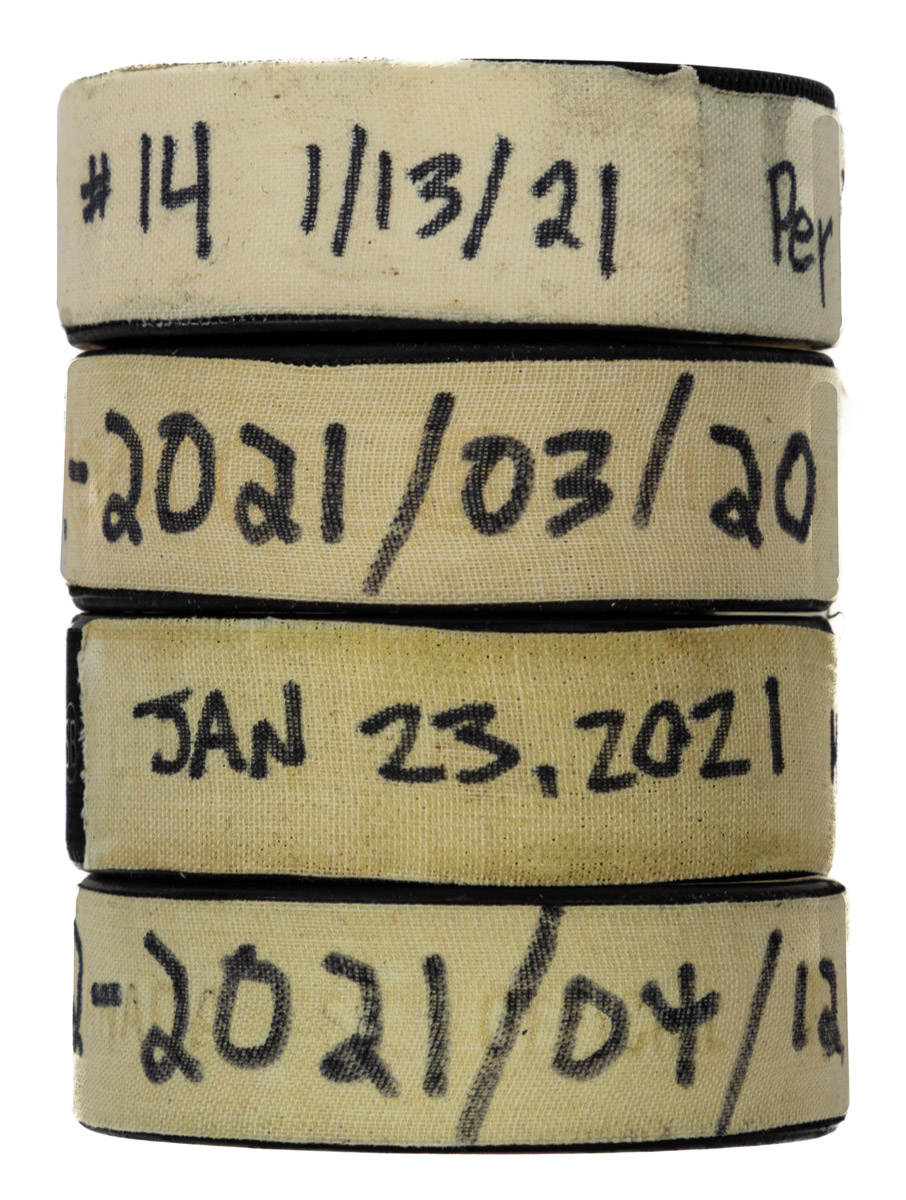 #14 1/13/21 Per
-2021/03/20
JAN 23, 2021
2-2021/04/12